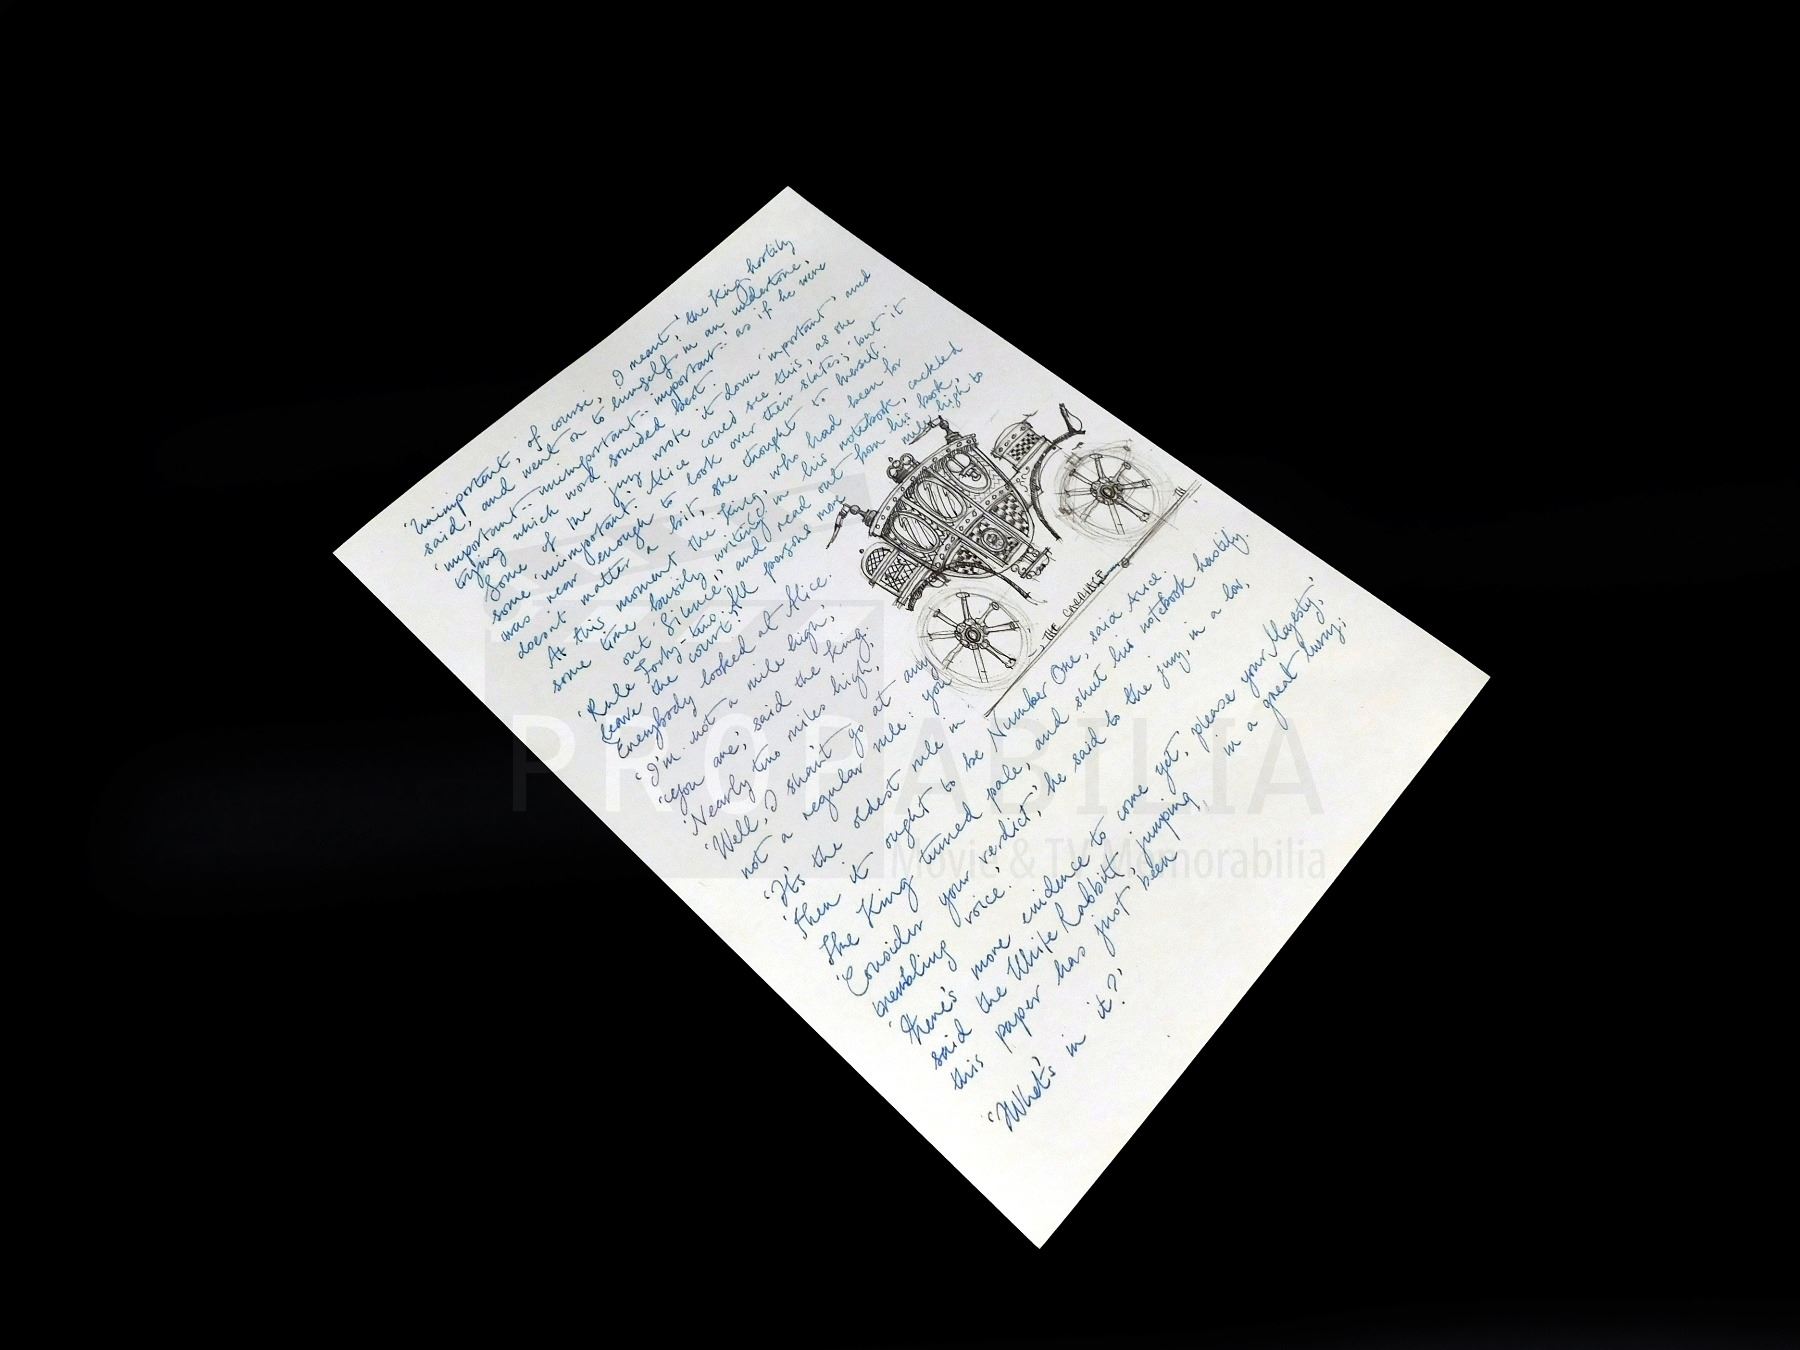 'Unimportant, of course, I meant,' the King hastily
said, and went on to himself in an undertone,
'important-- unimportant-- important--' as if he were
trying which word sounded best.
Some of the jury wrote it down 'important' and
some 'unimportant.' Alice could see this, as she
was near enough to look over their slates; 'but it
doesnt matter a bit,' she thought to herself.
At this moment the King, who had been for
some time busily writing in his notebook, cackled
out 'Silence,' and read out from his book,
'Rule Forty-two. All persons more mile high to
leave the court.'
Everybody looked at Alice.
'I'm not a mile high,'
'You are,' said the King.
'Nearly two miles high,'
'Well, I shan't go at any
not a regular rule: you
'It's the oldest rule in
'Then it ought to be Number One,' said Alice.
The King turned pale, and shut his notebook hastily.
'Consider your verdict,' he said to the jury, in a low,
trembling voice.
'There's more evidence to come yet, please your Majesty,'
said the White Rabbit, jumping in a great hurry;
this paper has just been
'What's in it?'
THE CARRIAGE
PROPABILIA
Movie & TV Memorabilia